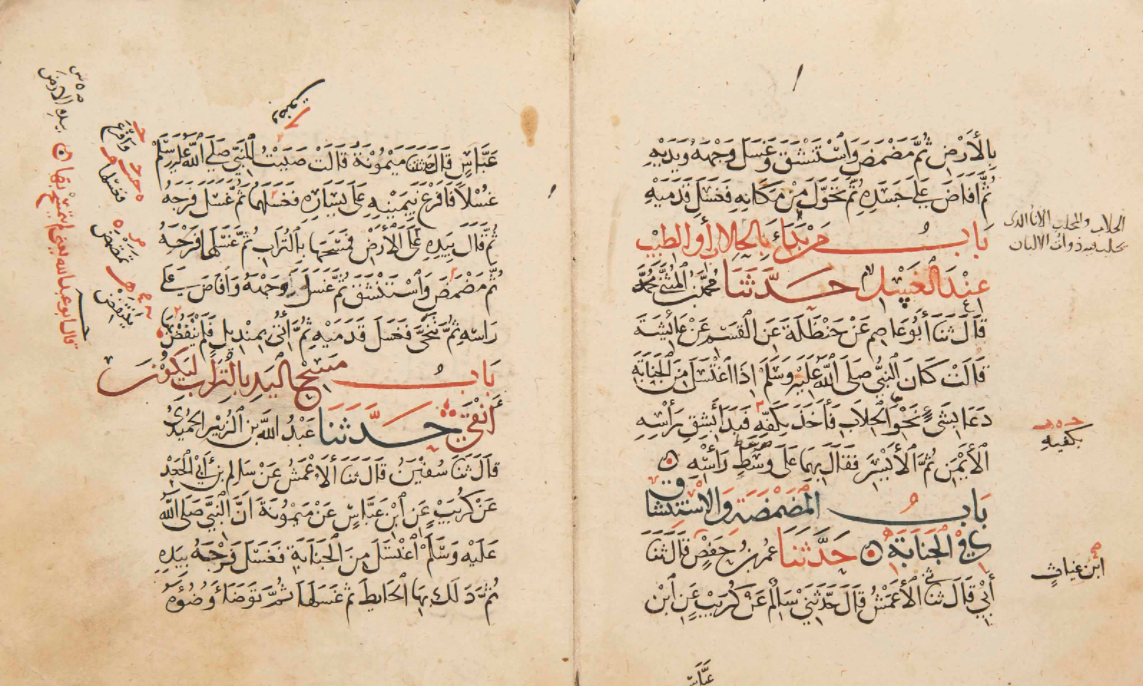 بالأرض ثم مضمض واستنشق وغسل وجهه ويديه
ثم أفاض على جسده ثم تحول من مكانه فغسل قدميه
باب من بدأ بالحلاب أو الطيب
عند الغسل حدثنا محمد بن المثنى
قال ثنا أبو عاصم عن حنظلة عن القسم عن عائشة
قالت كان النبي صلى الله عليه وسلم إذا اغتسل من الجنابة
دعا بشيء نحو الحلاب فأخذ بكفه فبدأ بشق رأسه
الأيمن ثم الأيسر فقال بهما على وسط رأسه
باب المضمضة والاستنشاق
في الجنابة حدثنا عمر بن حفص قال ثنا
أبي قال ثنا الأعمش قال حدثني سالم عن كريب عن ابن
عباس
الحلاب والمحلب الانا الذي
يحلب فيه ذوات الالبان
بكفيه
ابن غياث
عباس قال حدثتنا ميمونة قالت صببت للنبي صلى الله عليه وسلم
غسلا فأفرغ بيمينه على يساره فغسلهما ثم غسل فرجه
ثم قال بيده على الأرض فمسحها بالتراب ثم غسلها
ثم مضمض واستنشق ثم غسل وجهه وأفاض على
رأسه ثم تنحى فغسل قدميه ثم أتى بمنديل فلم ينفض
باب مسح اليد بالتراب ليكون
أنقى حدثنا عبد الله بن الزبير الحميدي
قال ثنا سفين قال ثنا الأعمش عن سالم بن أبي الجعد
عن كريب عن ابن عباس عن ميمونة أن النبي صلى الله
عليه وسلم اغتسل من الجنابة فغسل فرجه بيده
ثم دلك بها الحائط ثم غسلها ثم توضأ وضوءه
بيده الارض
قال أبو عبد الله يعني لم يتمسح بها